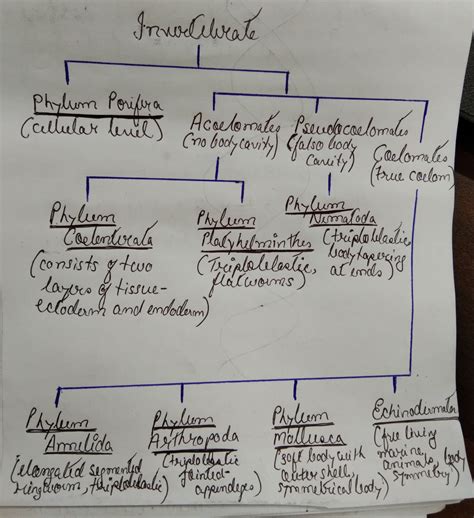 Invertebrate
Phylum Porifera
(cellular level)
Acoelomates
(no body cavity)
Pseudocoelomates
(false body
cavity)
Coelomates
(true coelom)
Phylum
Coelenterata
(consists of two
layers of tissue-
ectoderm and endoderm)
Phylum
Platyhelminthes
(Triploblastic,
flatworms)
Phylum
Nematoda
(triploblastic,
body tapering
at ends)
Phylum
Annelida
(elongated segmented
ringworm, triploblastic)
Phylum
Arthropoda
(triploblastic
jointed-
appendages)
Phylum
Mollusca
(soft body with
outer shell,
symmetrical body)
Echinodermata
(free living
marine
animals, body
symmetry)